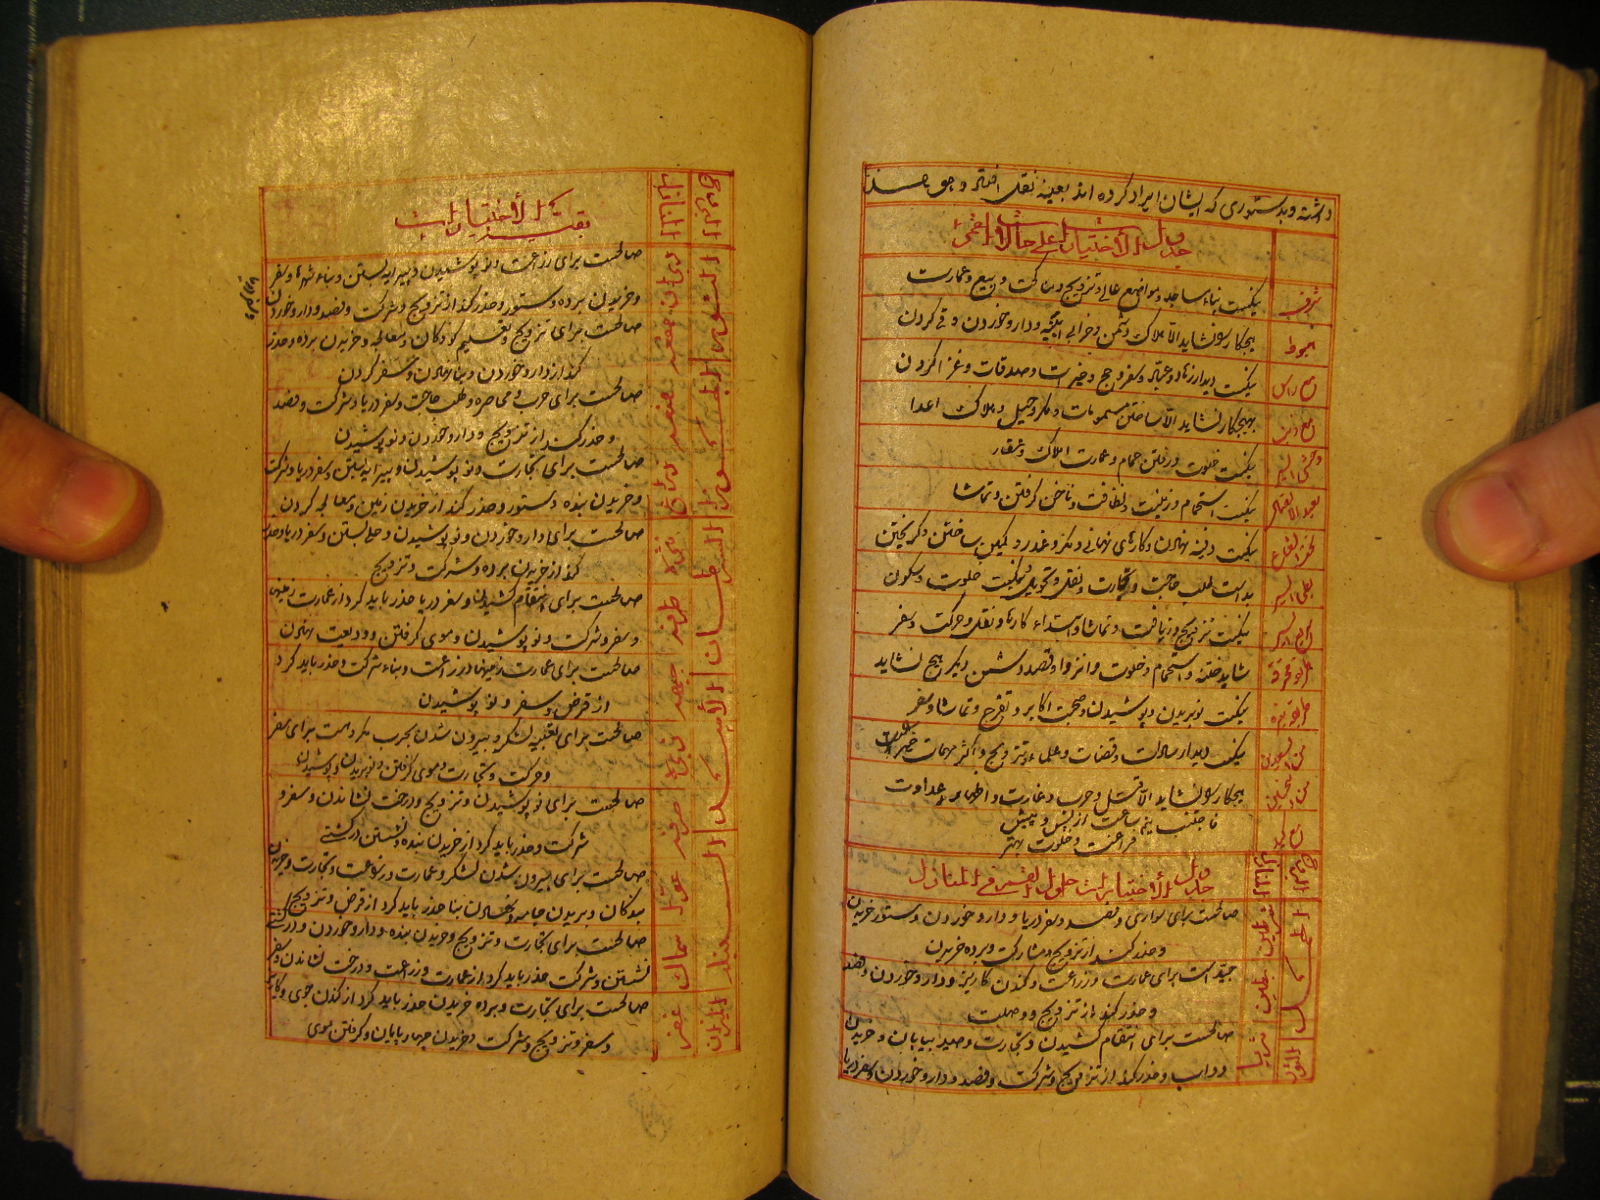 داشته و بدستوری که ایشان ایراد کرده اند بعینه نقل افتد و هو هذا
جدول الاختیارات علی حالات القمر
شرف
نیکست بناء مساجد و مواضع عالی و تزویج و مناکحت و بیع و عمارت
هبوط
هیچکار را نشاید الا هلاک دشمن و خرابی ابنیه و دارو خوردن و قی کردن
مع راس
نیکست دیدار زهاد و عباد و سفر حج و خیرات و صدقات و غزا کردن
مع ذنب
هیچکار نشاید الا ساختن مسمومات و مکر و حیل و هلاک اعدا
وحشی السیر
نیکست خلوت و رفتن حمام و عمارت املاک و عقار
بعید الاتصال
نیکست استحمام و زینت و نظافت و ناخن گرفتن و تماشا
تحت الشعاع
نیکست دفینه نهادن و کارهای نهانی و مکر و غدر و کمین ساختن و گریختن
بطی السیر
بد است طلب حاجت و تجارت و نقل و تحویل و نیکست خلوت و سکون
سریع السیر
نیکست تزویج و ضیافت و تماشا و ابتداء کارها و نقل و حرکت و سفر
طریقه محترقه
شاید ختنه و استحمام و خلوت و انزوا و قصد دشمن دیگر هیچ نشاید
نیکست نو بریدن و پوشیدن و صحبت اکابر و تفرج و تماشا و سفر
بین السعدین
نیکست دیدار سادات و قضات و علما و تزویج و اکثر مهمات خیر
بین النحسین
هیچکار را نشاید الا قتل و حرب و غارت و اظهار عداوت
مع کید
تا جتنب نیم ساعت از پس و پیش
فراغت و خلوت بهتر
البروج
المنازل
جدول الاختیارات حلول القمر فی المنازل
الحمل
شرطین
صالحست برای سواری و فصد و سفر دریا و دارو خوردن و ستور خریدن
و حذر کنند از تزویج و مشارکت و برده خریدن
بطین
جید است برای عمارت و زراعت و کندن کاریز و دارو خوردن و فصد
و حذر کند از تزویج و وصلت
الثور
ثریا
صالحست برای انتقام کشیدن و تجارت و صید بیابان و خریدن
دواب و حذر کند از تزویج و شرکت و فصد و دارو خوردن و سفر دریا
البروج
المنازل
بقیة الاختیارات
دبران
صالحست برای زراعت و نو پوشیدن و پیرایه بستن و بناء شهرها و سفر
و خریدن برده و ستور و حذر کند از تزویج و شرکت و فصد و دارو خوردن
هقعه
صالحست برای تزویج و تعلیم کودکان و معالجه و خریدن برده و حذر
کند از دارو خوردن و بنا نهادن و سفر کردن
هنعه
صالحست برای حرب و محاصره و طلب حاجت و سفر دریا و شرکت و فصد
و حذر کنند از تزویج و دارو خوردن و نو پوشیدن
ذراع
صالحست برای تجارت و نو پوشیدن و پیرایه بستن و سفر دریا و شرکت
و خریدن بنده و ستور و حذر کند از خریدن زمین و معالجه کردن
السرطان
نثره
صالحست برای دارو خوردن و نو پوشیدن و حلی بستن و سفر دریا و حذر
کند از خریدن برده و شرکت و تزویج
طرفه
صالحست برای انتقام کشیدن و سفر دریا حذر باید کرد از عمارت زمین
و سفر و شرکت و نو پوشیدن و موی گرفتن و ودیعت نهادن
الاسد
جبهه
صالحست برای عمارت زمینها و زراعت و بناء شرکت و حذر باید کرد
از قرض و سفر و نو پوشیدن
زبره
صالحست برای تعبیه لشکر و بیرون شدن بحرب مکروهست برای سفر
و حرکت و تجارت و موی گرفتن و نو بریدن و پوشیدن
صرفه
صالحست برای نو پوشیدن و تزویج و درخت نشاندن و سفر و
شرکت و حذر باید کرد از خریدن بنده و نشستن در کشتی
السنبله
عوا
صالحست برای بیرون شدن لشکر و عمارت و زراعت و تجارت و خریدن
بندگان و بریدن جامه و نهادن بنا حذر باید کرد از قرض و تزویج
سماک
صالحست برای تجارت و تزویج و خریدن بنده و دارو خوردن و در کشتی
نشستن و شرکت حذر باید کرد از عمارت و زراعت و درخت نشاندن و سفر
المیزان
غفر
صالحست برای تجارت و برده خریدن حذر باید کرد از کندن جوی و کاریز
و سفر و تزویج و شرکت و خریدن چهارپایان و گرفتن موی